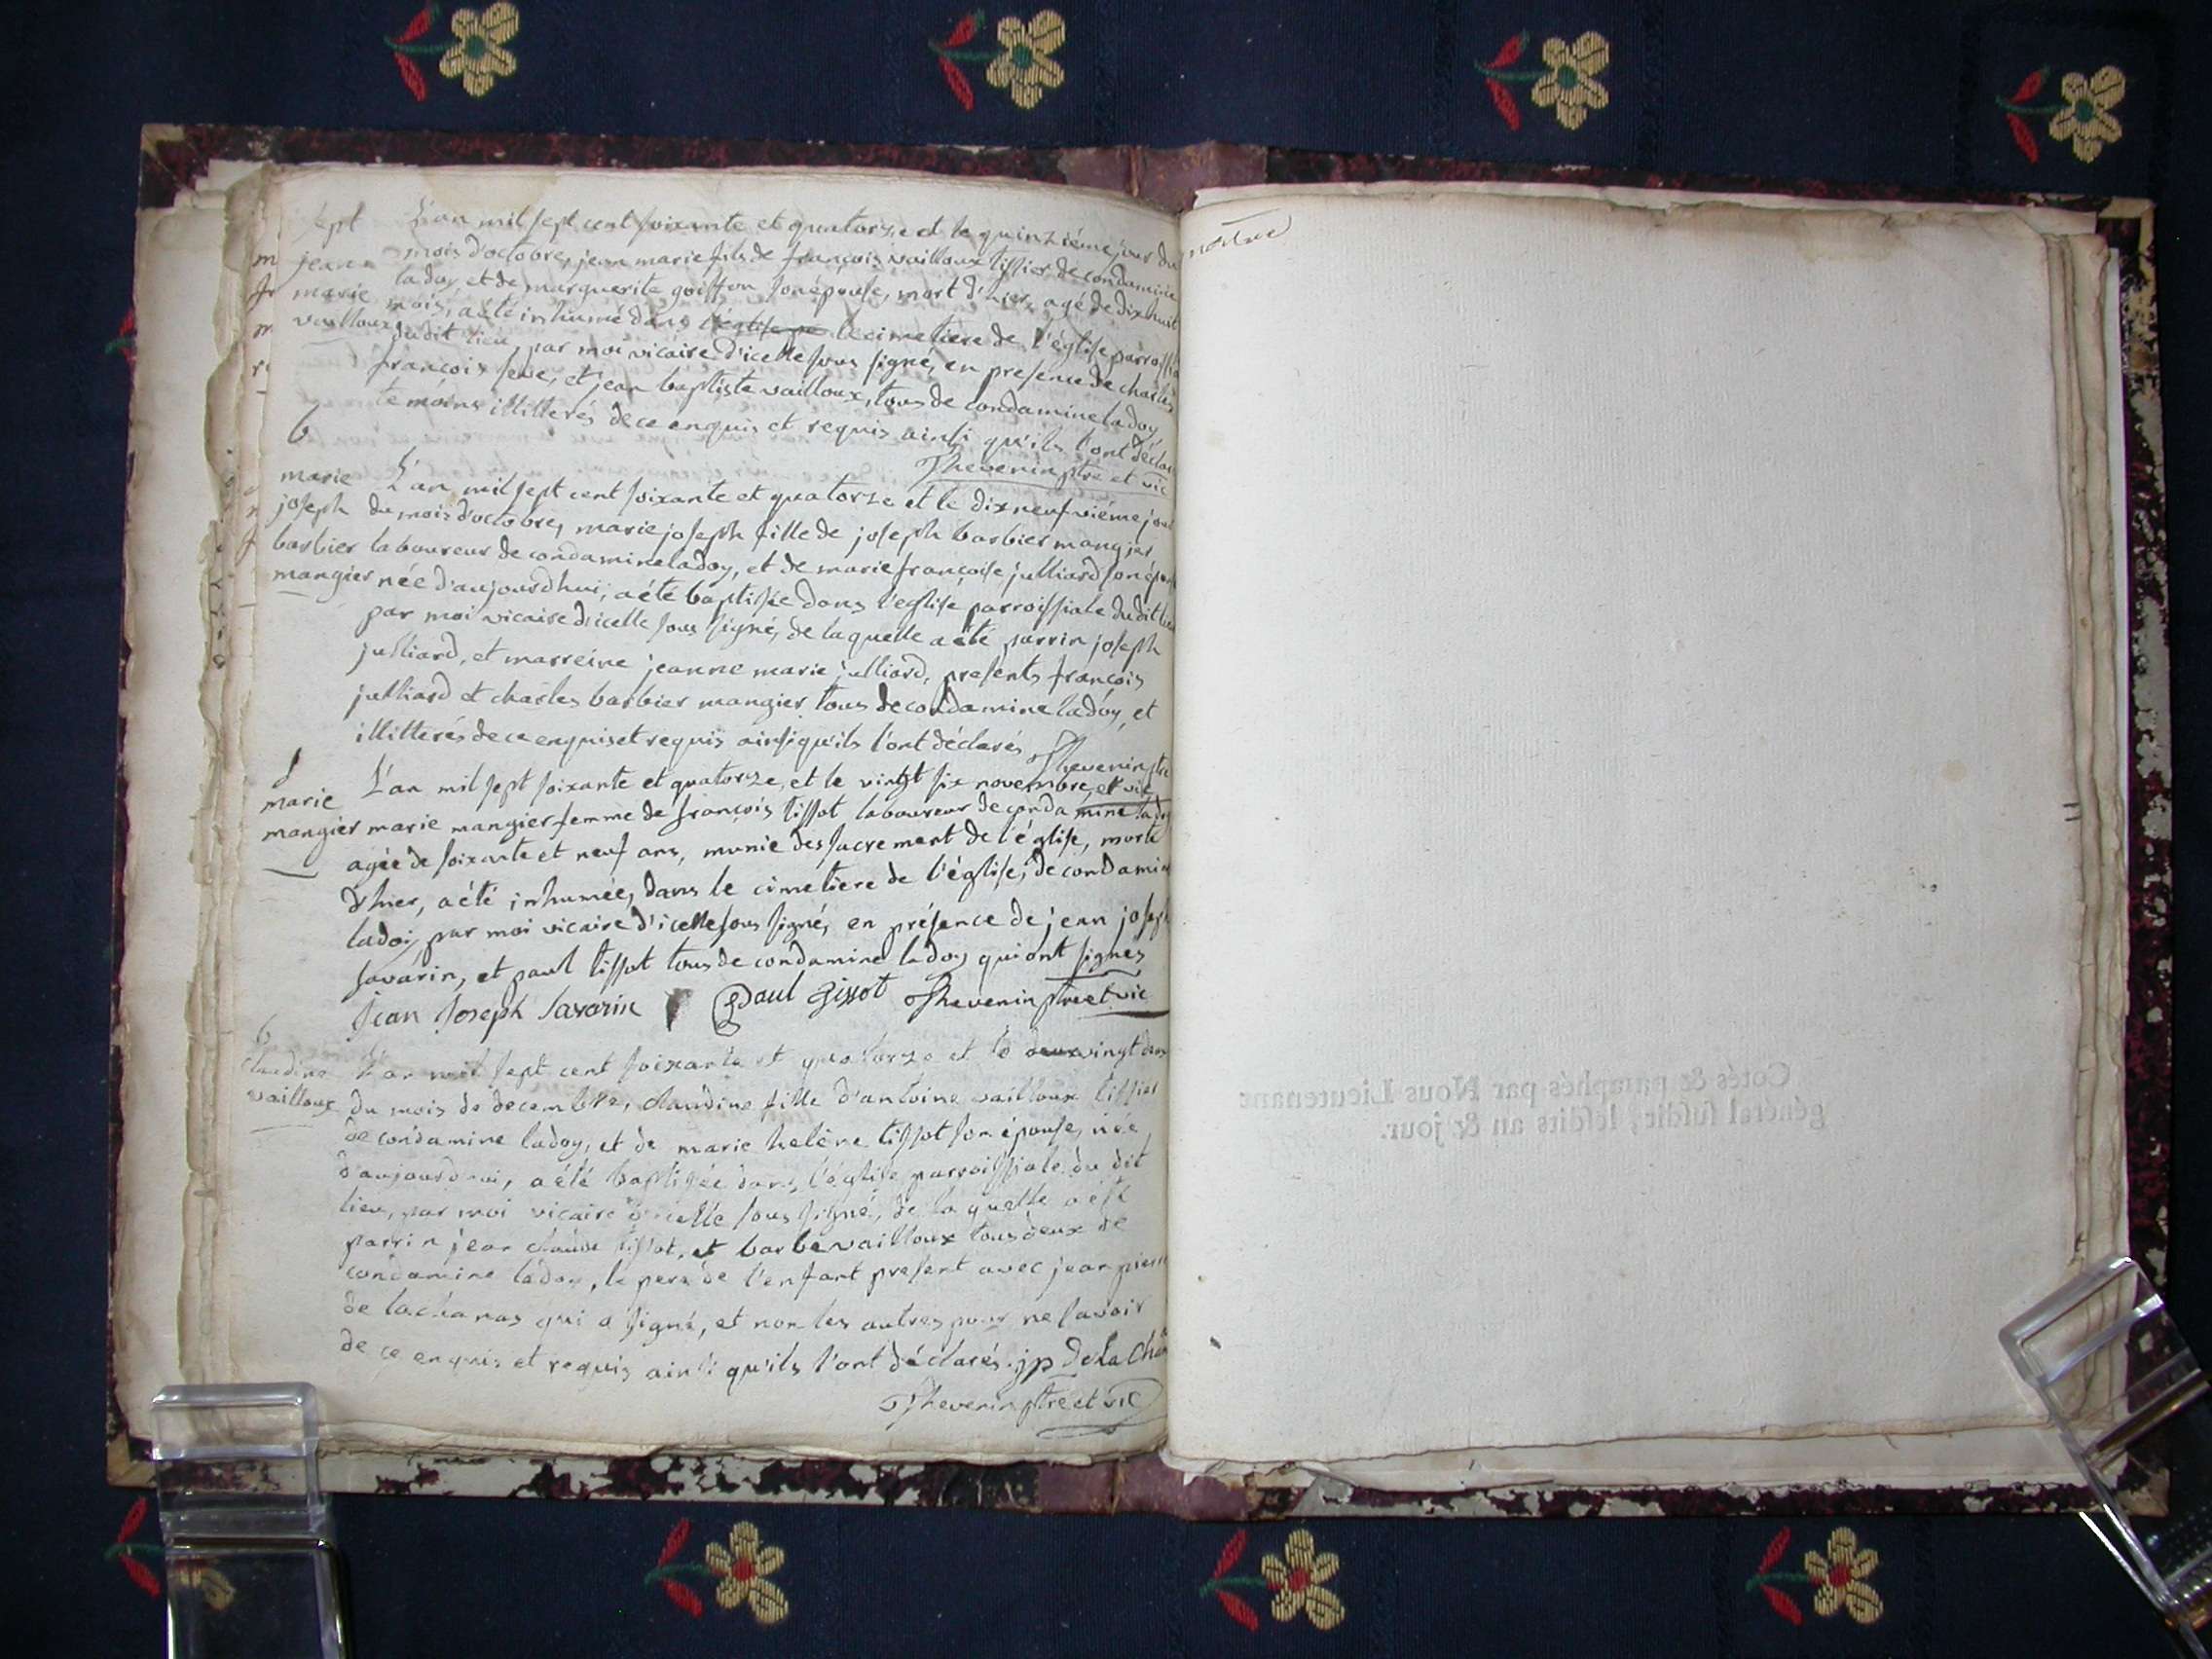 sept L'an mil sept cent soixante et quatorze et le quinziéme jour du
jean mois d'octobre, jean marie fils de françois vailloux tissier de condamine
marie ladoy, et de marguerite goiffon son épouse, mort d'hier, agé de dix huit
vailloux mois, a été inhumé dans l'église le cimetiere de l'église parroissia
dudit lieu, par moi vicaire d'icelle sous signé, en presence de charles
françois seve, et jean baptiste vailloux, tous de condamine ladoy
temoins illitterés de ce enquis et requis ainsi qu'ils l'ont déclar
Thevenin ptre et vic
b
marie L'an mil sept cent soixante et quatorze et le dix neufviéme jour
joseph du mois d'octobre, marie joseph fille de joseph barbier mangier
barbier laboureur de condamine ladoy, et de marie françoise julliard son épouse
mangier née d'aujourdhui, a été baptisée dans l'eglise parroissiale dudit lieu
par moi vicaire d'icelle sous signé, de laquelle a été parrin joseph
julliard, et marreine jeanne marie julliard, presents françois
julliard et charles barbier mangier tous de condamine ladoy, et
illitterés de ce enquis et requis ainsi qu'ils l'ont déclarés Thevenin ptre
et vic
marie L'an mil sept soixante et quatorze, et le vingt six novembre,
mangier marie mangier femme de françois tissot laboureur de condamine ladoy
agée de soixante et neuf ans, munie des sacrement de l'église, morte
d'hier, a été inhumée, dans le cimetiere de l'église, de condamine
ladoy, par moi vicaire d'icelle sous signé, en présence de jean joseph
savarin, et paul tissot tous de condamine ladoy qui ont signés
Jean Joseph Savarin Paul Tissot Thevenin ptre et vic
b
claudine L'an mil sept cent soixante et quatorze et le deux vingt deux
vailloux du mois de decembre, claudine fille d'antoine vailloux tissier
de condamine ladoy, et de marie helene tissot son épouse, née
d'aujourd'hui, a été baptisée dans l'église parroissiale du dit
lieu, par moi vicaire d'icelle sous signé, de laquelle a été
parrin jean claude tissot, et barbe vailloux tous deux de
condamine ladoy, le pere de l'enfant present avec jean pierre
de lachanas qui a signé, et non les autres pour ne savoir
de ce enquis et requis ainsi qu'ils l'ont déclarés. jp De La Cha
Thevenin ptre et vic
Cotés & paraphés par Nous Lieutenant
général susdit; lesdits an & jour.